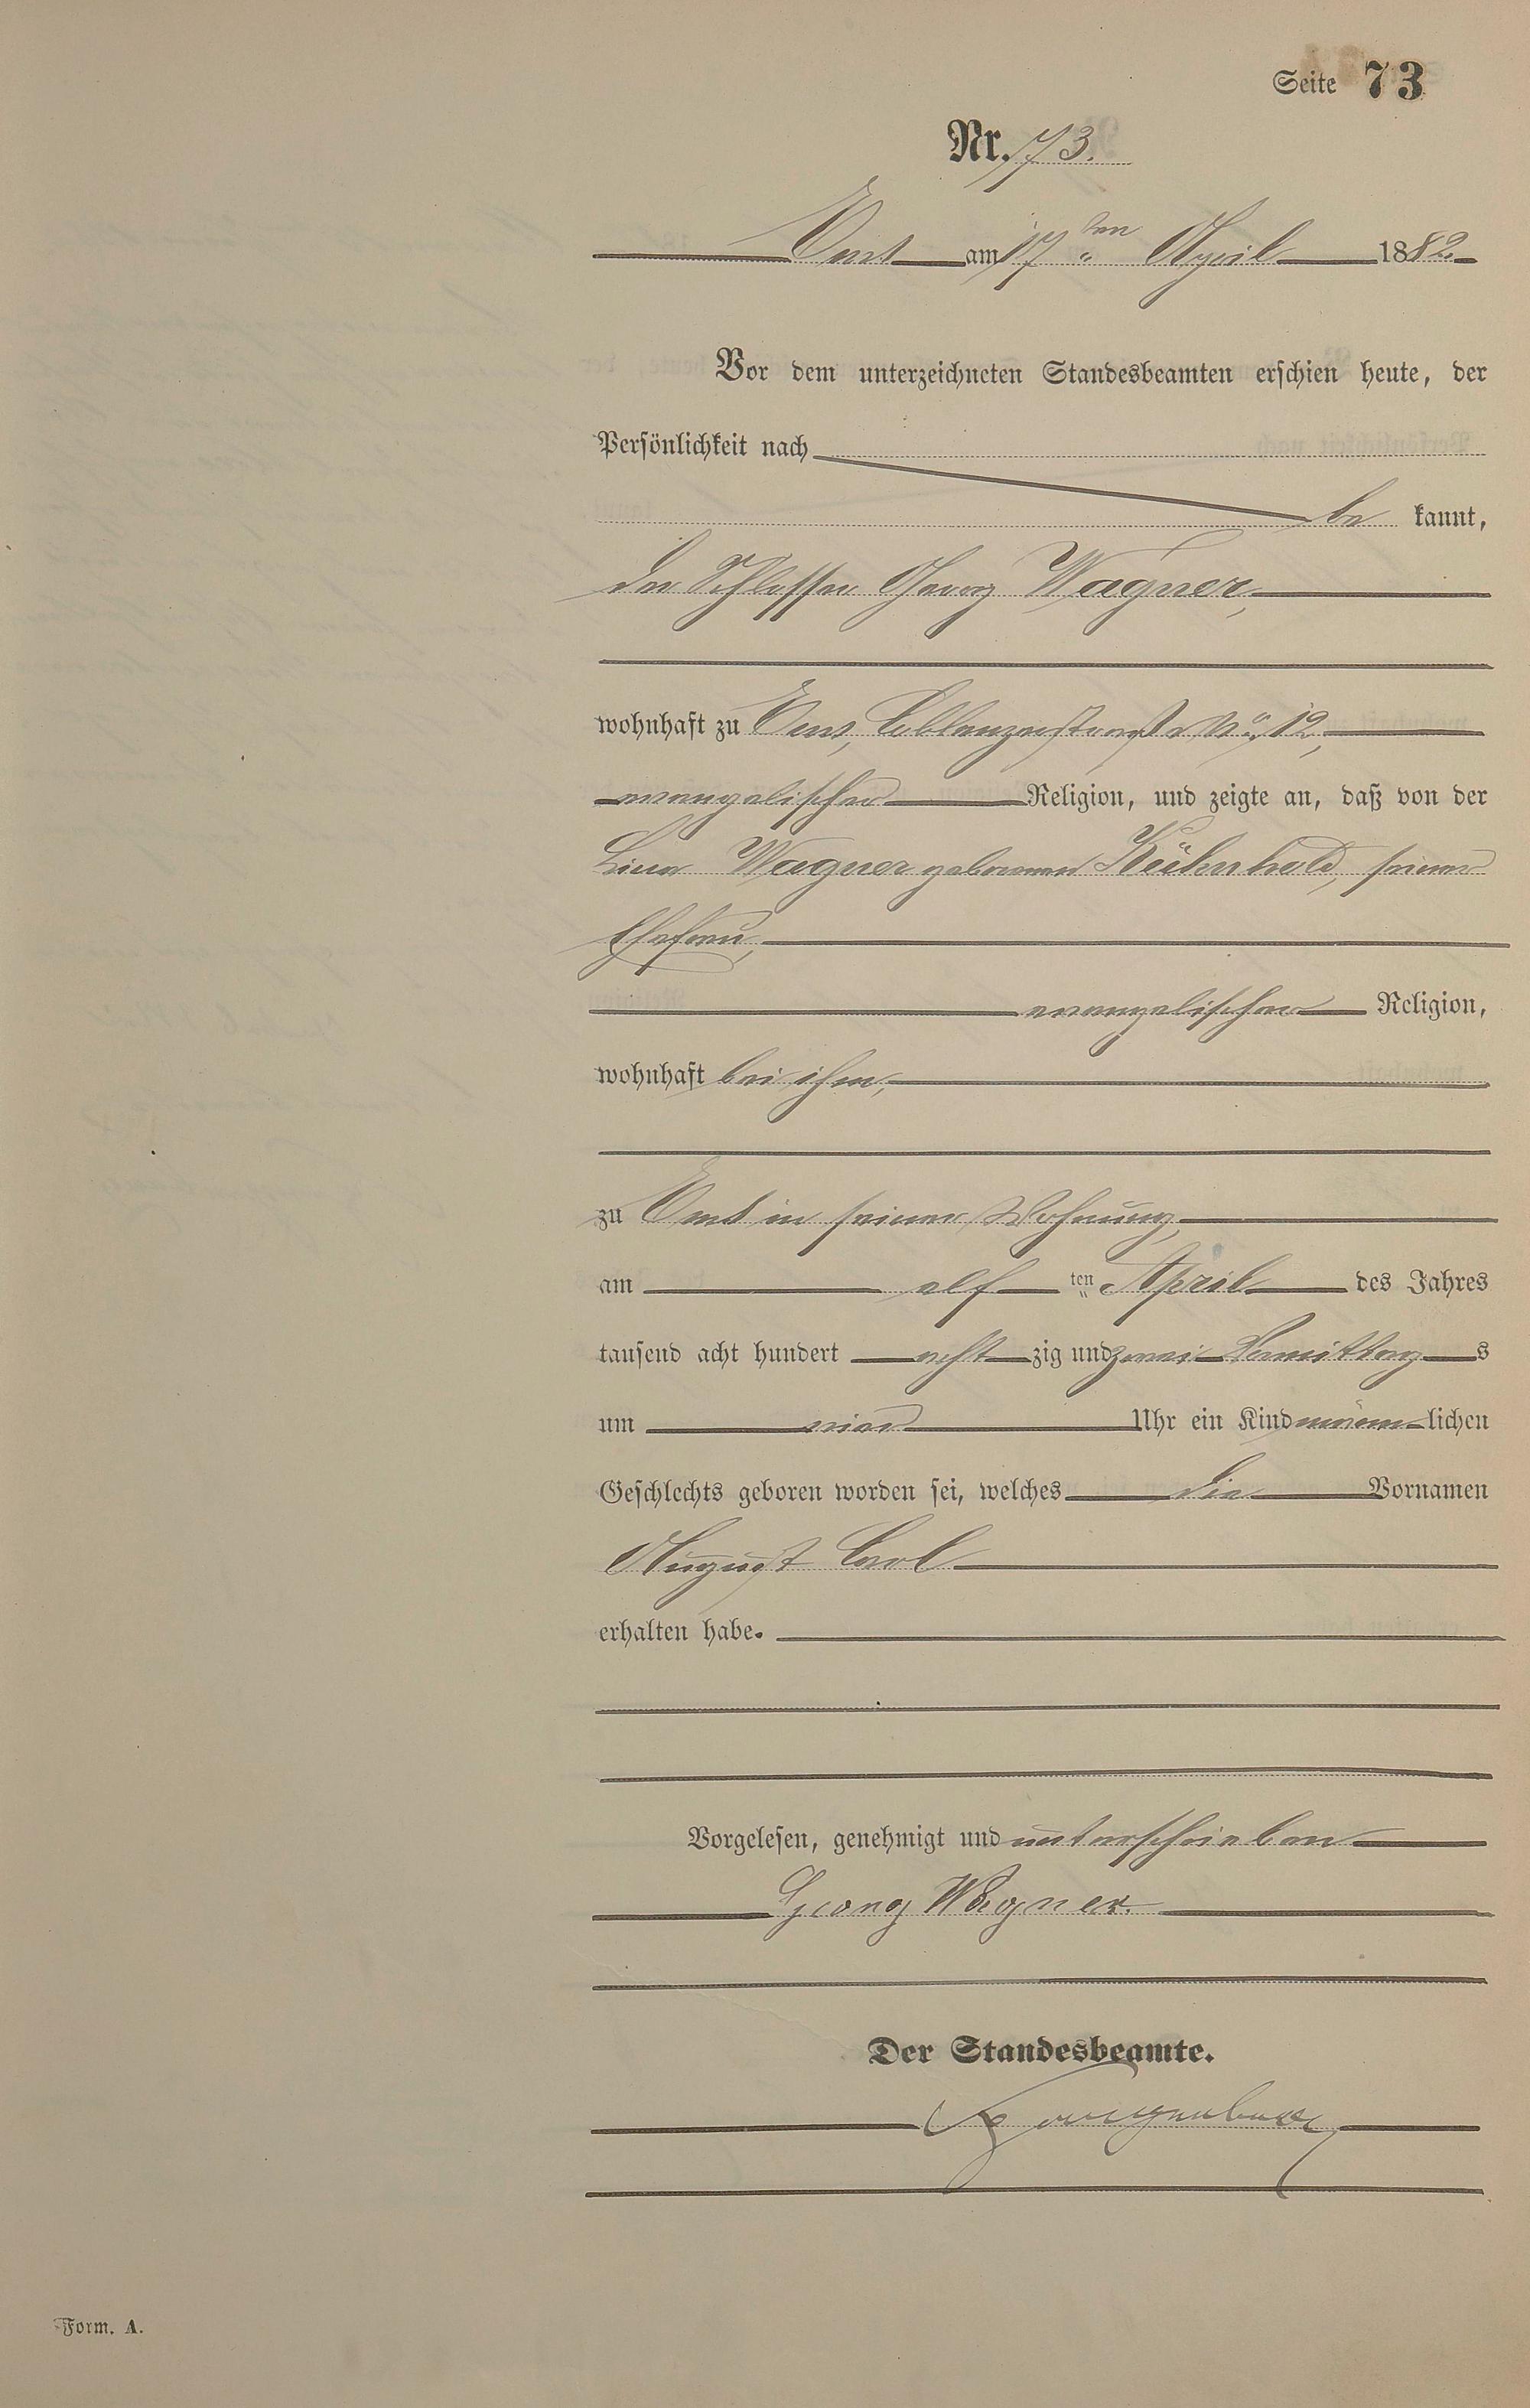 Seite 73
Nr. 73.
Ems am 17 ten April 1882.
Vor dem unterzeichneten Standesbeamten erschien heute, der
Persönlichkeit nach
be kannt,
der Schlosser Georg Wagner,
wohnhaft zu Ems, Coblenzerstraße No. 12,
evangelischer Religion, und zeigte an, daß von der
Lina Wagner geborenen Kühnhold, seiner
Ehefrau,
evangelischer Religion,
wohnhaft bei ihm,
zu Ems in seiner Wohnung,
am elf ten April des Jahres
tausend acht hundert acht zig und zwei Vormittag s
um vier Uhr ein Kind männ lichen
Geschlechts geboren worden sei, welches die Vornamen
August Carl
erhalten habe.
Vorgelesen, genehmigt und unterschrieben
Georg Wagner.
Der Standesbeamte.
Form. A.